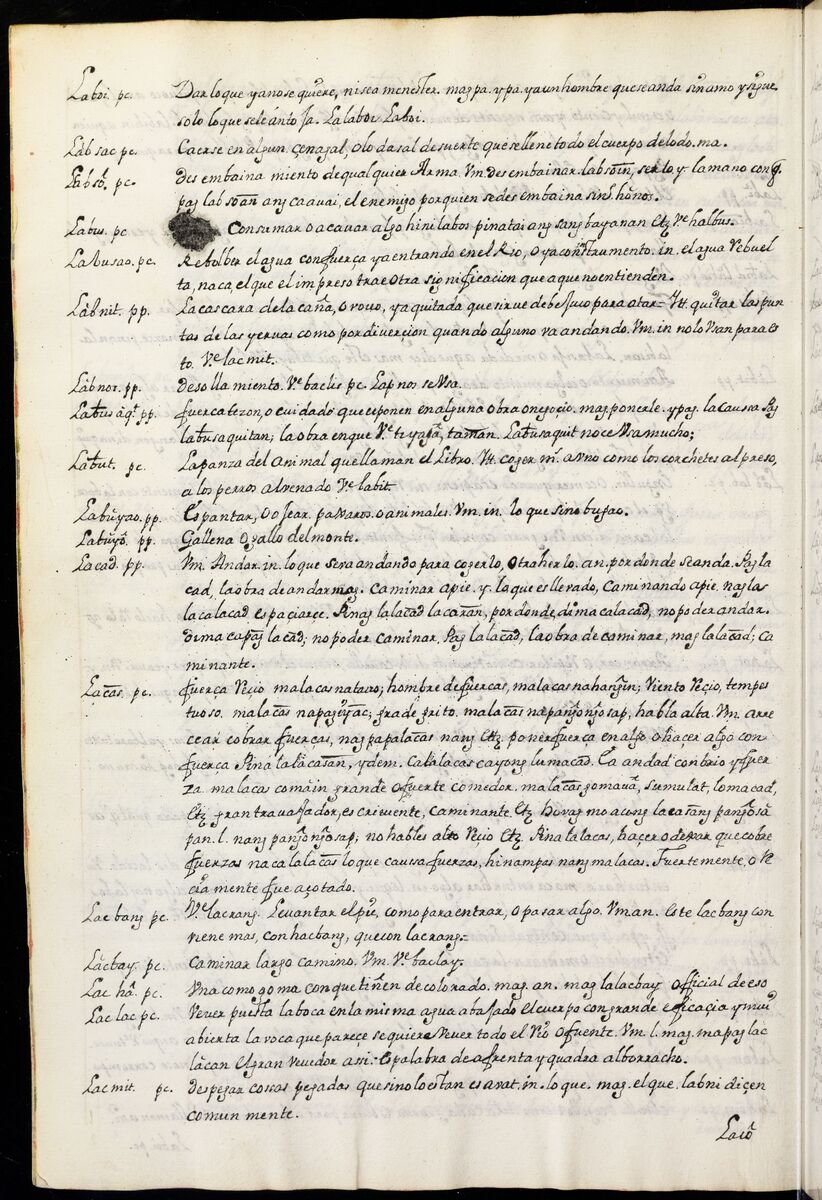 Laboi. pc. Dar lo que ya no se quiere, ni sea menester. mag pa. y pa. ya un hombre que se anda sin amo y sigue
solo lo que se le antoja. Lalaboi Laboi.
Làb sac pc. Caerse en algun çenagal, o lodasal de suerte que se llene todo el cuerpo de lodo. ma.
Labsõ. pc. des embaina miento de qualquier Arma. Vm. des embainar. labsoĩn, ser lo y la mano con q̃.
pag labsoãn ang caauai, el enemigo por quien se des embaina sinl. hõnos.
Labus. pc Consumar o acavar algo hini labos pinatai ang sang bayanan Etz. Ve. halbus.
Labusao. pc. Rebolber el agua con fuerça ya entrando en el Rio, o ya con instrumento. in. el agua rebuel
ta, naca, el que el impreso trae otra significacion que aque no entienden.
Làbnit. pp. La cascara de la caña, o rovo, ya quitada que sirue de bejuco para atar - Ytt. quitar las pun
tas de las yeruas como por diverçion quando alguno va andando. Vm. in no lo Vsan para es
to. Ve. lacmit.
Làbnos. pp. desollamiento. Ve. baclis pc. Lapnos se Vsa.
Labusàqt. pp. fuerca tezon, o cuidado que se ponen en alguna obra o negoçio. mag ponerle. y pag. la caussa. Pag
labusaquitan; la obra en que Ve. tiyagã, taman. Labusaquit no ce Vsa mucho;
Labut. pc. La panza del animal que llaman el Libro. Ytt. coger ml. a Vno como los corchetes al preso,
a los perros al venado Ve. labit.
Labùyao. pp. Espantar, o ojear. paxaros. o animales. Vm. in. lo que sino bugao.
Labuyõ. pp. Gallena o gallo del monte.
Lacad. pp. Vm. Andar. in. lo que sera andando para cogerlo, o traherlo. an. por donde se anda. Pag la
cad, la obra de andar mag. Caminar a pie. y. lo que es llevado, Caminando a pie. nag las
lacalacad. espaçiarçe. Pinag lalacad lacaran, por donde, di macalacad, no poder andar.
di maca pag lacad; no poder caminar. Pag lalacad, la obra de caminar, mag lalacad; Ca
minante.
Laças. pc. fuerça reçio. malacas na tauo; hombre de fuercas, malacas na hangin; Viento reçio, tempes
tuoso. malacas na pagyyac; grade grito. malacas na pangongosap, habla alta. Vm. arre
ciar cobrar fuerças, nag papalacas nang Etz. poner fuerça en algo o haçer algo con
fuerça. Pina lalacasan, ydem. Calalacas cayong lumacad. Ea andad con brio y fuer
za. malacas comàin grande o fuerte comedor. malacas gomaua, sumulat, lomacad,
Etz. gran travajador, escriuente, caminante. Etz. houag mo acong lacasang pangosa
pan. l. nang pangongosap; no hables alto reçio Etz. Pina lalacas, haçer o dexar que cobre
fuerzas nacalalacas lo que causa fuerzas, hinampas nang malacas. Fuertemente, o re
ciamente fue açotado.
Lac bang pc. Ve. lacrang. Levantar el pie, como para entrar, o pasar algo. Vm. an. Este lacbang con
viene mas, con hacbang, que con lacrang.
Làcbay. pc. Caminar largo camino. Vm. Ve. baclay.
Lac hã. pc. Vna como goma con que tiñen de colorado. mag. an. mag lalachay official de eso
Lac lac pc. Vever puesta la boca en la misma agua abajado el cuerpo con grande eficaçia y muy
abierta la voca que parece se quiere vever todo el Rio o fuente. Vm. l. mag. mapag lac
làcan el gran vevedor assi. Es palabra de afrenta y quadra al borracho.
Lac mit. pc. despegar cossas pegadas que si no lo estan es avat. in. lo que. mag. el que. labni diçen
comun mente.
Lacõ